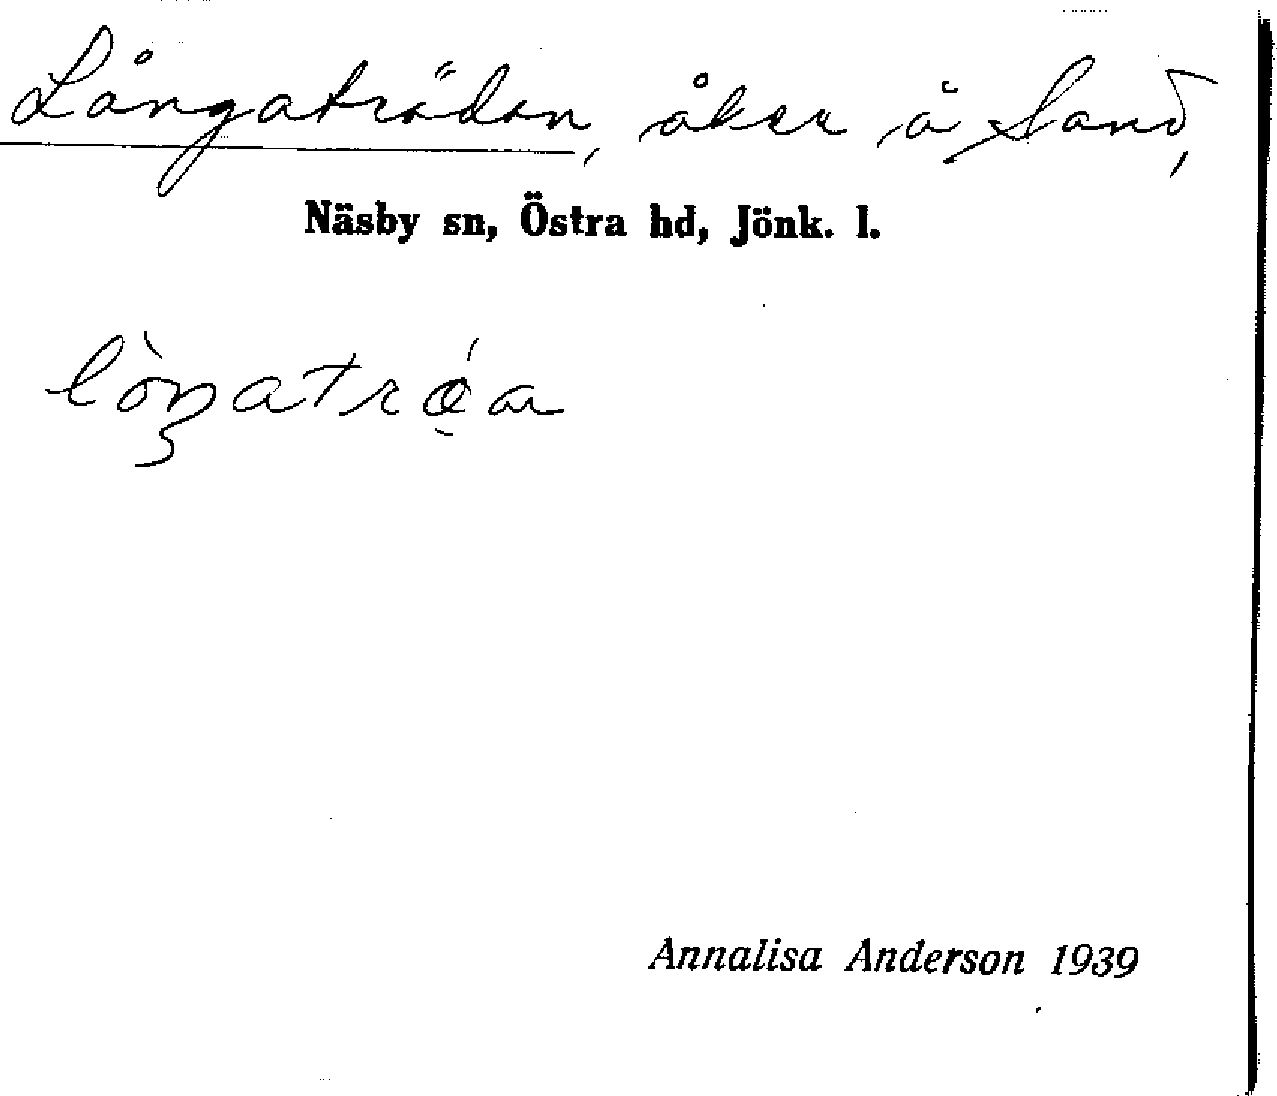 Långaträdan, åker å Sand,
Näsby sn, Östra hd, Jönk. l.
Annalisa Anderson 1939